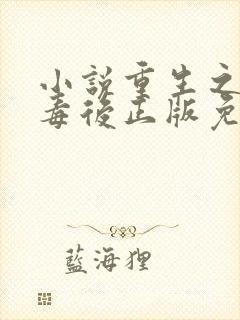 小說重生之
毒後正版免
藍海狸